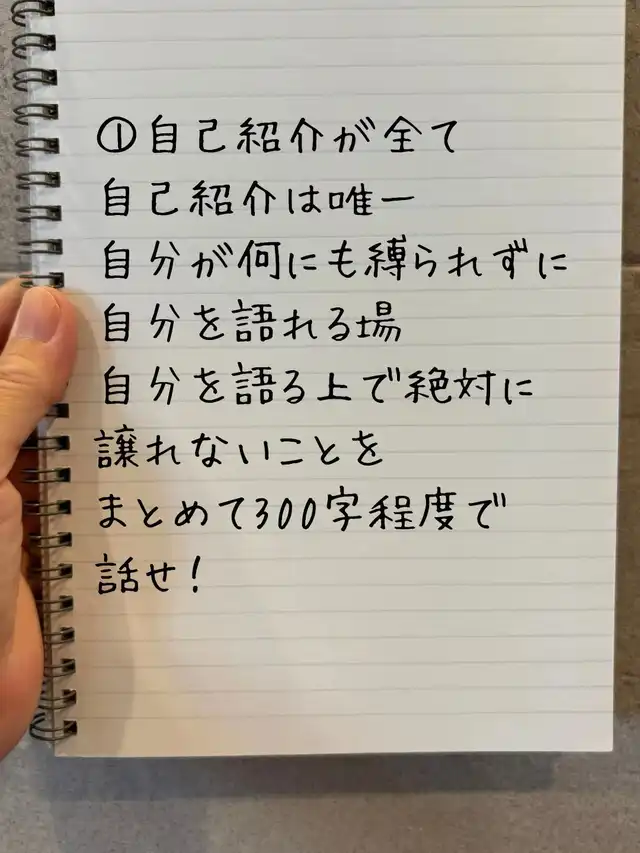 ①自己紹介が全て
自己紹介は唯一
自分が何にも縛られずに
自分を語れる場
自分を語る上で絶対に
譲れないことを
まとめて300字程度で
話せ!